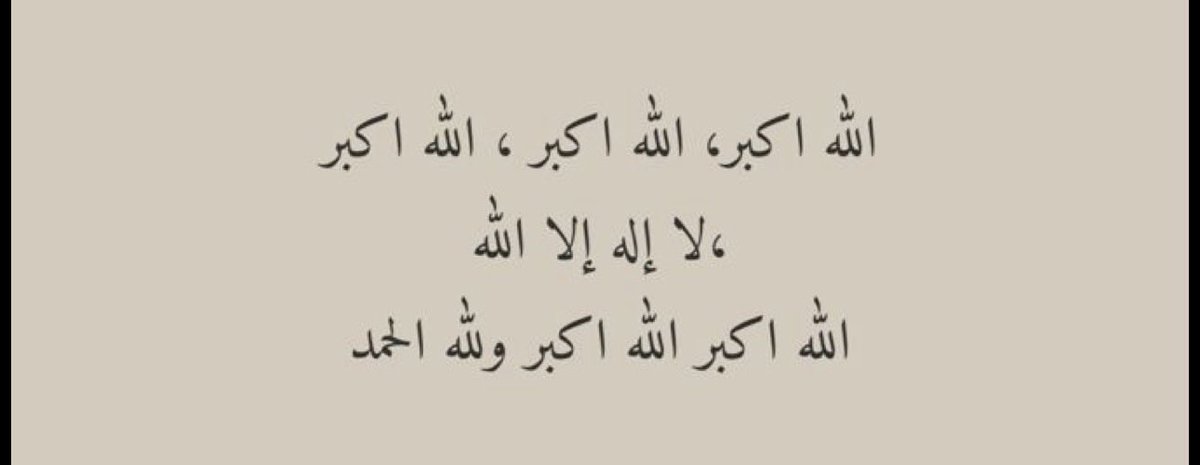 الله اكبر، الله اكبر ، الله اكبر
،لا إله إلا الله
الله اكبر الله اكبر ولله الحمد